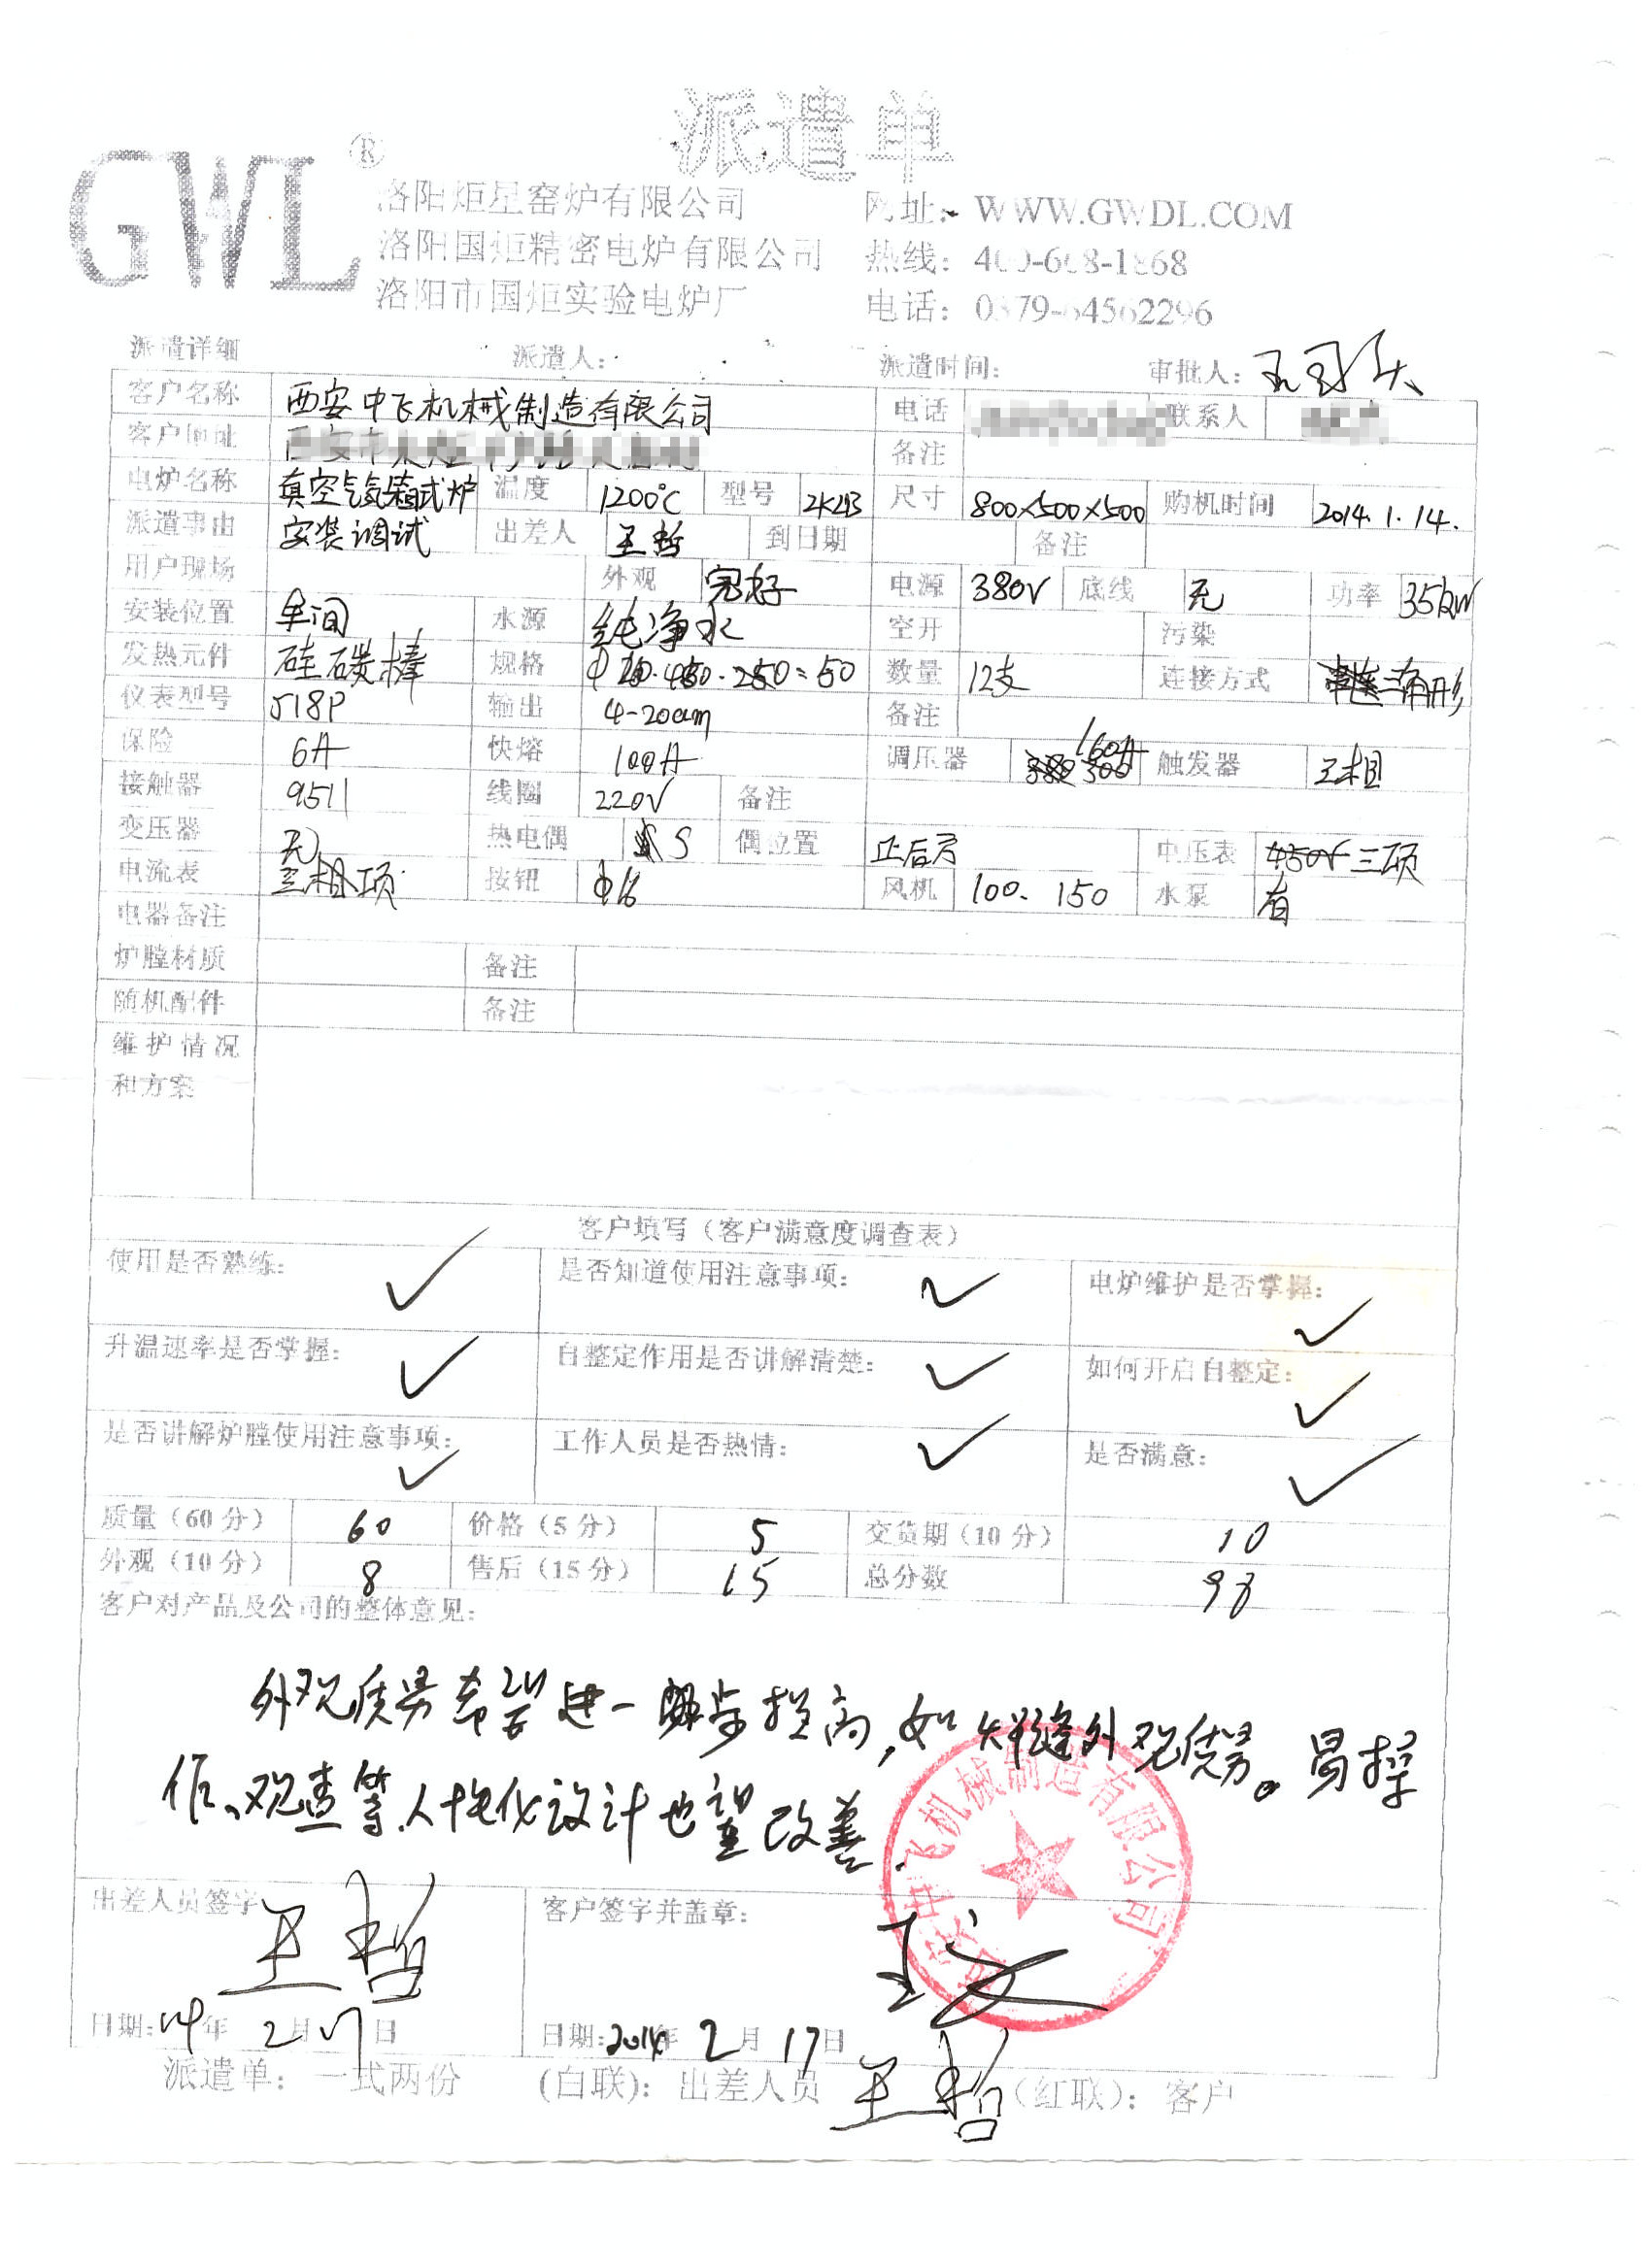 派遣单
GWL®
洛阳炬星窑炉有限公司 网址: WWW.GWDL.COM
洛阳国炬精密电炉有限公司 热线: 400-608-1868
洛阳市国炬实验电炉厂 电话: 0379-64562296
派遣详细 派遣人: 派遣时间: 审批人:
客户名称 西安中飞机械制造有限公司 电话 联系人
客户地址 备注
电炉名称 真空气氛箱式炉 温度 1200℃ 型号 尺寸 800×500×500 购机时间 2014.1.14.
派遣事由 安装调试 出差人 王哲 到日期 备注
用户现场 外观 完好 电源 380V 底线 无 功率 35kW
安装位置 车间 水源 纯净水 空开 污染
发热元件 硅碳棒 规格 数量 12支 连接方式 三角形
仪表型号 518P 输出 4-20am 备注
保险 6A 快熔 100A 调压器 160A 触发器 三相
接触器 9511 线圈 220V 备注
变压器 无 热电偶 S 偶位置 正后方 电压表 450V 三项
电流表 三相项 按钮 Φ16 风机 100. 150 水泵 有
电器备注
炉膛材质 备注
随机配件 备注
维护情况
和方案
客户填写（客户满意度调查表）
使用是否熟练: ✓ 是否知道使用注意事项: ✓ 电炉维护是否掌握: ✓
升温速率是否掌握: ✓ 自整定作用是否讲解清楚: ✓ 如何开启自整定: ✓
是否讲解炉膛使用注意事项: ✓ 工作人员是否热情: ✓ 是否满意: ✓
质量（60分） 60 价格（5分） 5 交货期（10分） 10
外观（10分） 8 售后（15分） 15 总分数 98
客户对产品及公司的整体意见:
外观质量希望进一步提高,如焊缝外观质量。易操
作、观查等人性化设计也望改善.
西安中飞机械制造有限公司
出差人员签字 王哲 客户签字并盖章: 王文
日期: 14年 2月17日 日期: 2014年 2月17日
派遣单: 一式两份 (白联): 出差人员 王哲 (红联): 客户